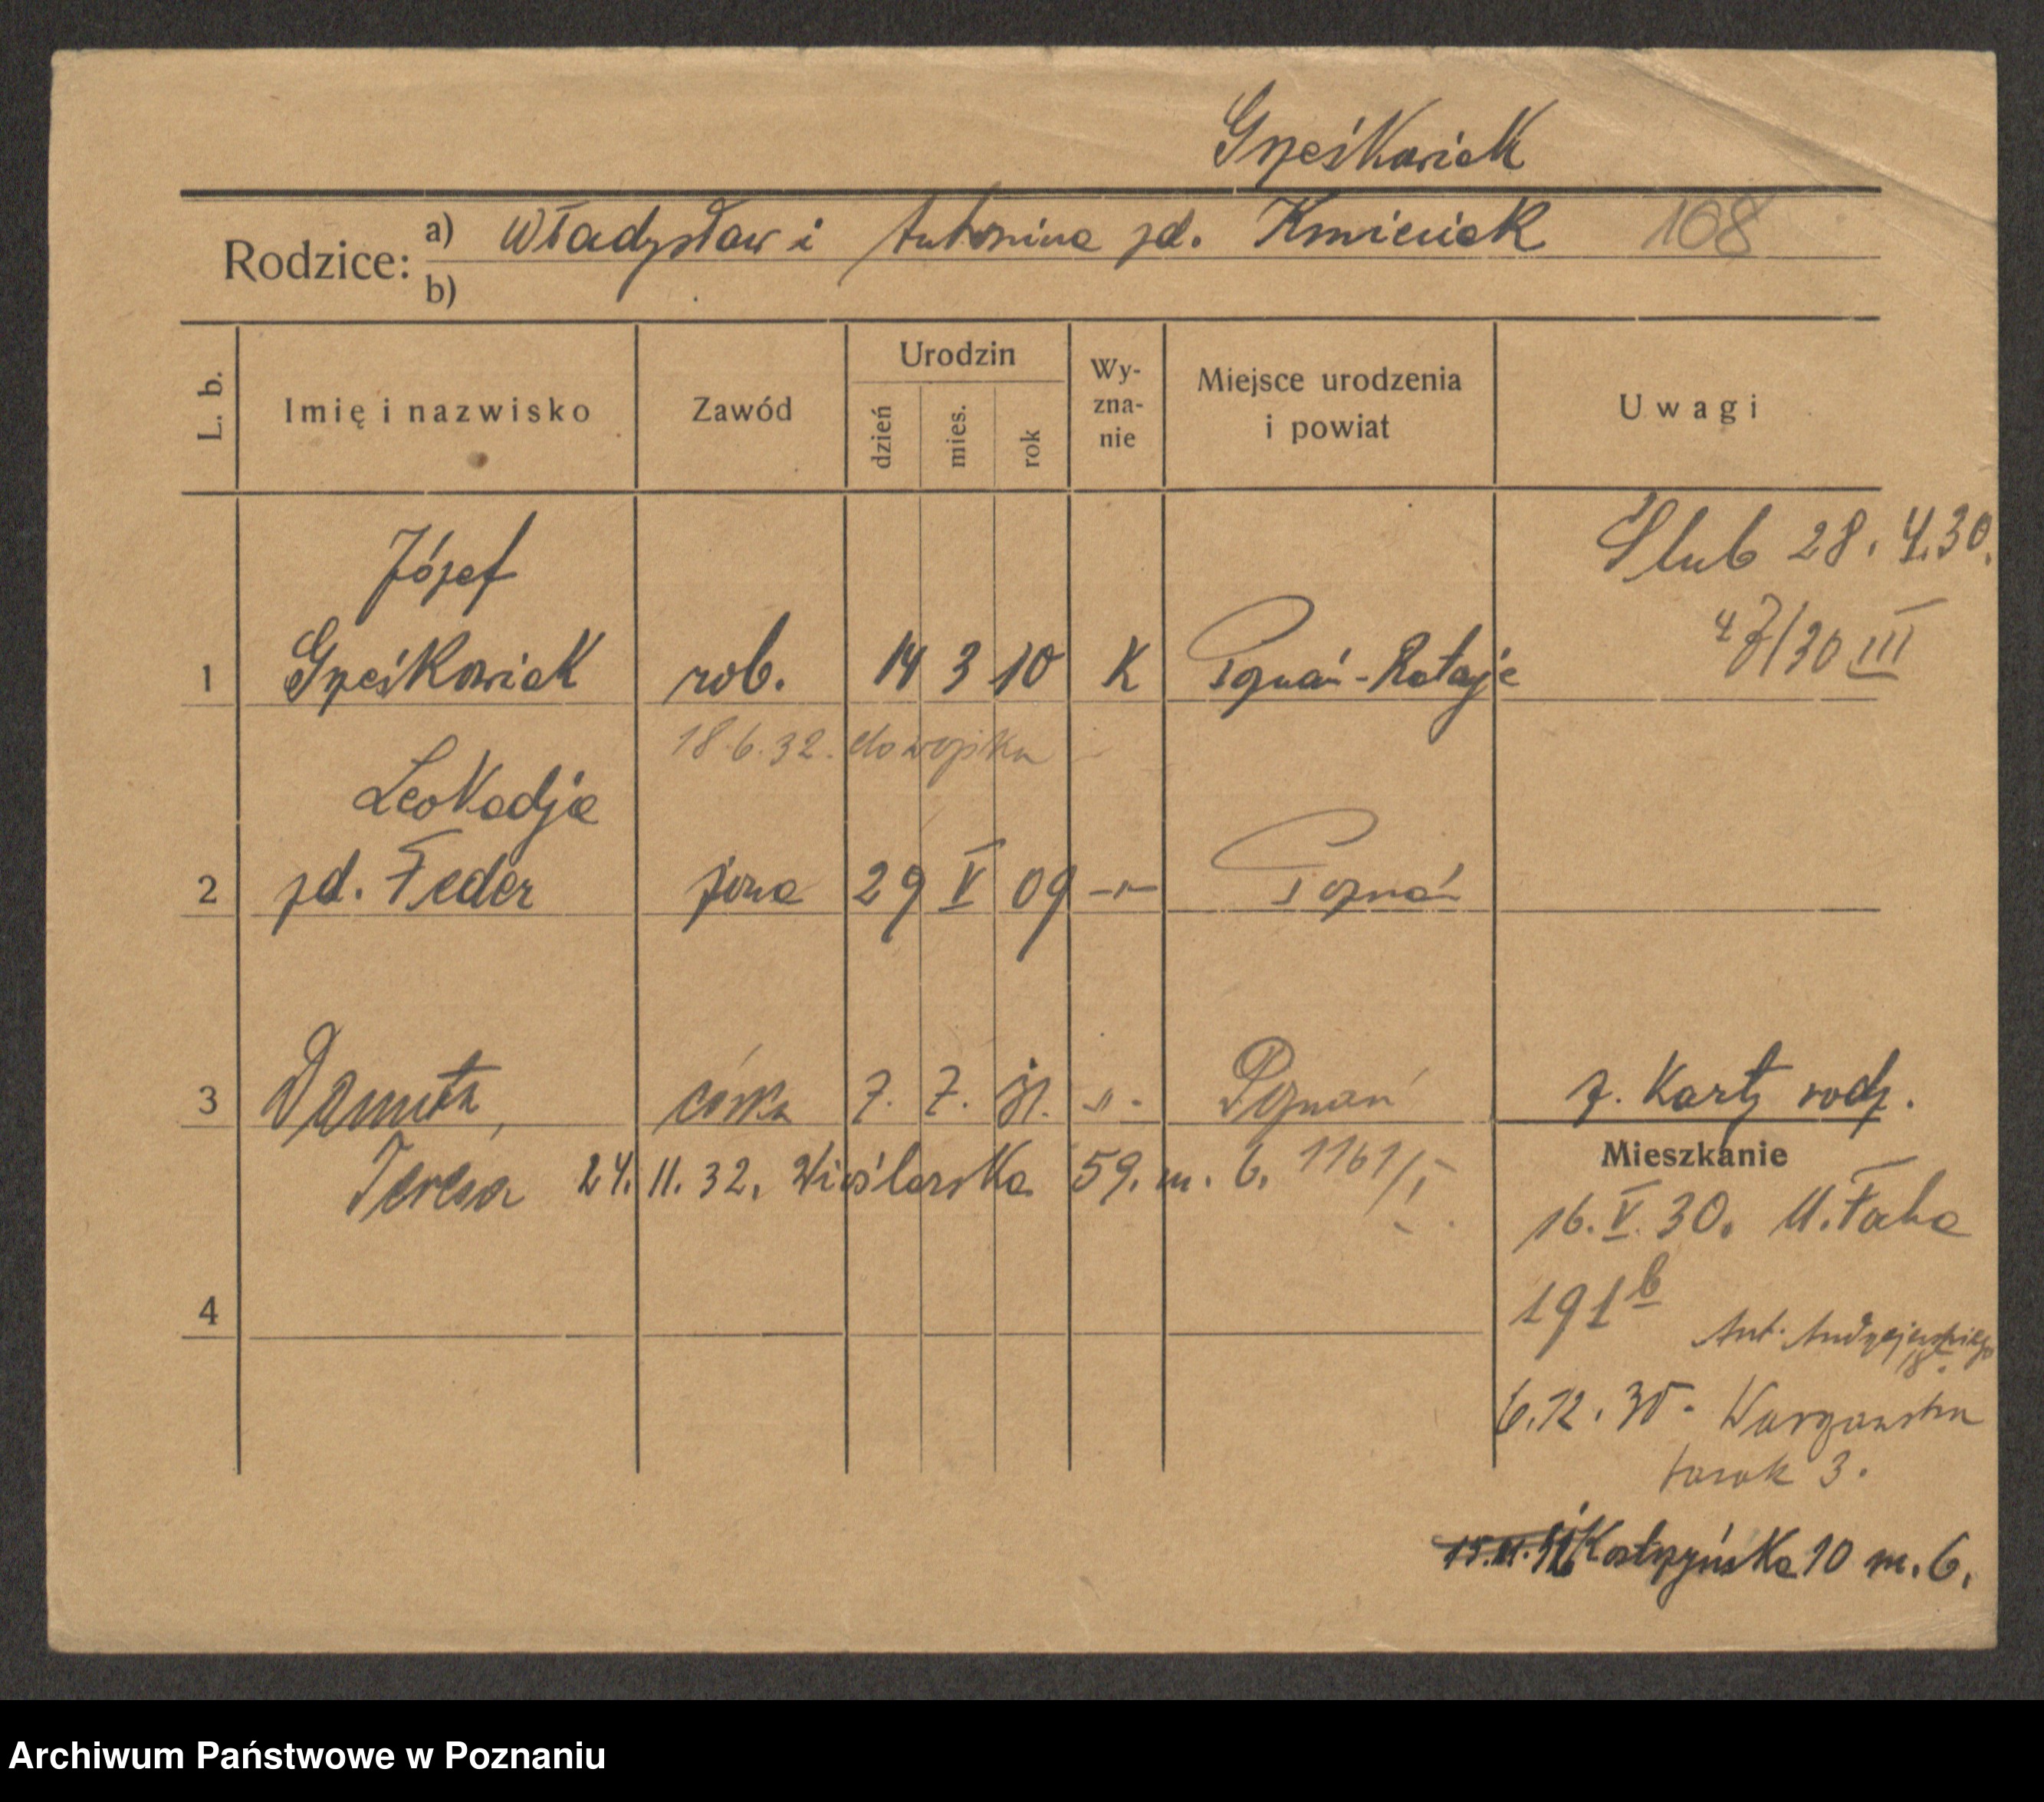 Grześkowiak
Rodzice: a) Władysław i Antonina zd. Kmieciak 108
b)
L. b. Imię i nazwisko Zawód Urodzin dzień mies. rok Wy-zna-nie Miejsce urodzenia i powiat Uwagi
Józef Slub 28. 4. 30.
1 Grześkowiak rob. 14 3 10 K Poznań-Rataje 47/30 III
18.6.32. do wojska
Leokadja
2 zd. Feder żona 29 V 09 -"- Poznań
3 Danuta, córka 7. 7. 31. -"- Poznań z. Karty rodz.
Teresa 24. 11. 32. Wioślarska 59. m. 6. 1161/I
Mieszkanie
16. V. 30.
191 b
4
Ant. Andrzejewskiego
6. 12. 30. Warszawska
barak 3.
Kostrzyńska 10 m. 6.
Archiwum Państwowe w Poznaniu